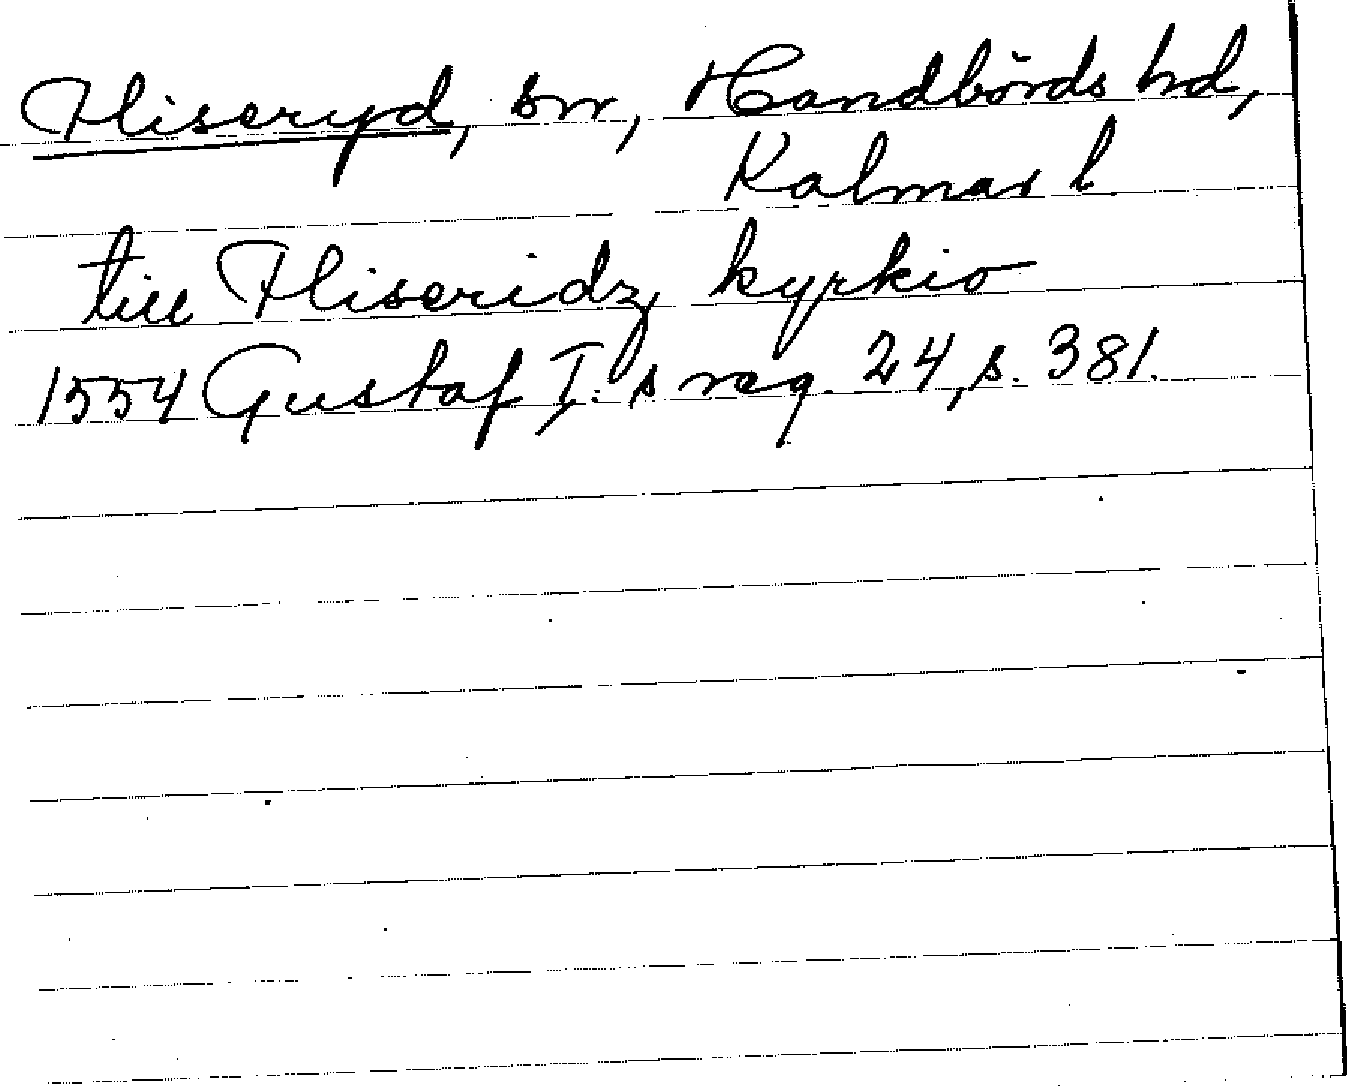 Fliseryd, sn, Handbörds hd,
Kalmar l
till Fliseridz kyrkio
1554 Gustaf I:s reg. 24, s. 381.